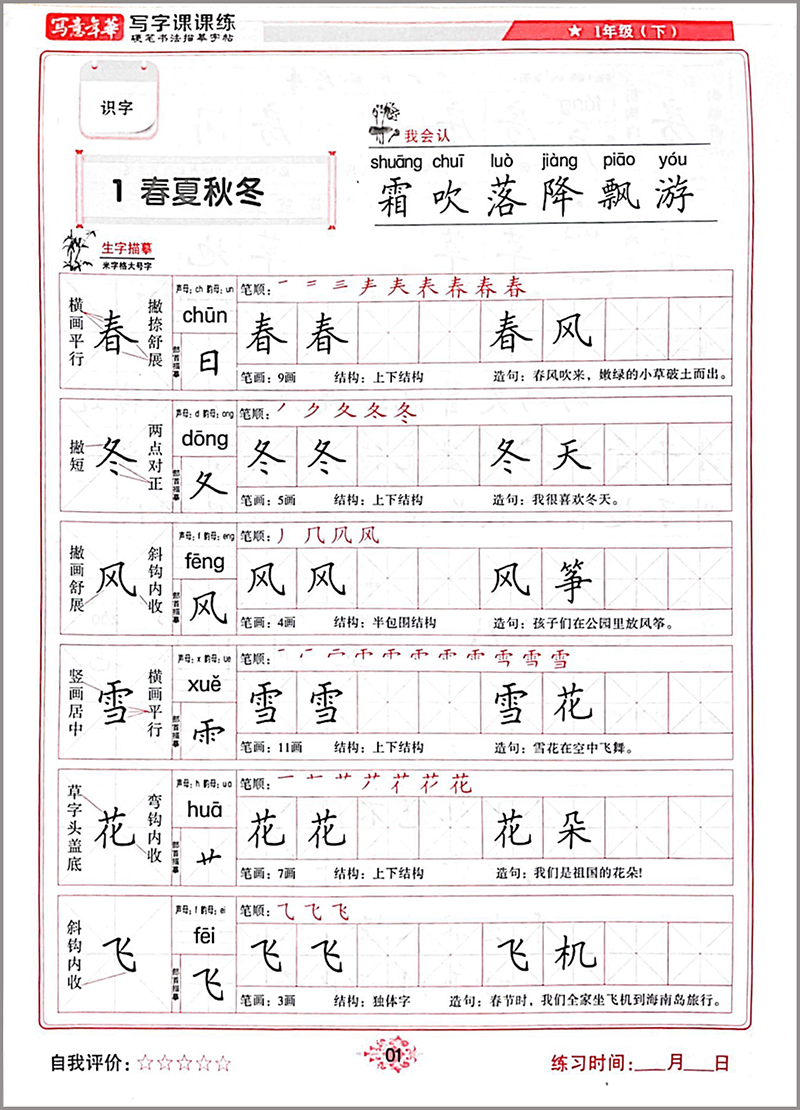 写意年華 写字课课练
硬笔书法描摹字帖
★ 1年级（下）
识字
1 春夏秋冬
我会认
shuāng chuī luò jiàng piāo yóu
霜 吹 落 降 飘 游
生字描摹
米字格大号字
横画平行
春
撇捺舒展
声母：ch 韵母：un
chūn
部首描摹
日
笔顺：
春 春 春 风
笔画：9画 结构：上下结构 造句：春风吹来，嫩绿的小草破土而出。
撇短
冬
两点对正
声母：d 韵母：ong
dōng
部首描摹
夂
笔顺：
冬 冬 冬 天
笔画：5画 结构：上下结构 造句：我很喜欢冬天。
撇画舒展
风
斜钩内收
声母：f 韵母：eng
fēng
部首描摹
风
笔顺：
风 风 风 筝
笔画：4画 结构：半包围结构 造句：孩子们在公园里放风筝。
竖画居中
雪
横画平行
声母：x 韵母：ue
xuě
部首描摹
⻗
笔顺：
雪 雪 雪 花
笔画：11画 结构：上下结构 造句：雪花在空中飞舞。
草字头盖底
花
弯钩内收
声母：h 韵母：ua
huā
部首描摹
艹
笔顺：
花 花 花 朵
笔画：7画 结构：上下结构 造句：我们是祖国的花朵!
斜钩内收
飞
声母：f 韵母：ei
fēi
部首描摹
飞
笔顺：
飞 飞 飞 机
笔画：3画 结构：独体字 造句：春节时，我们全家坐飞机到海南岛旅行。
自我评价：☆☆☆☆☆
01
练习时间：___月___日